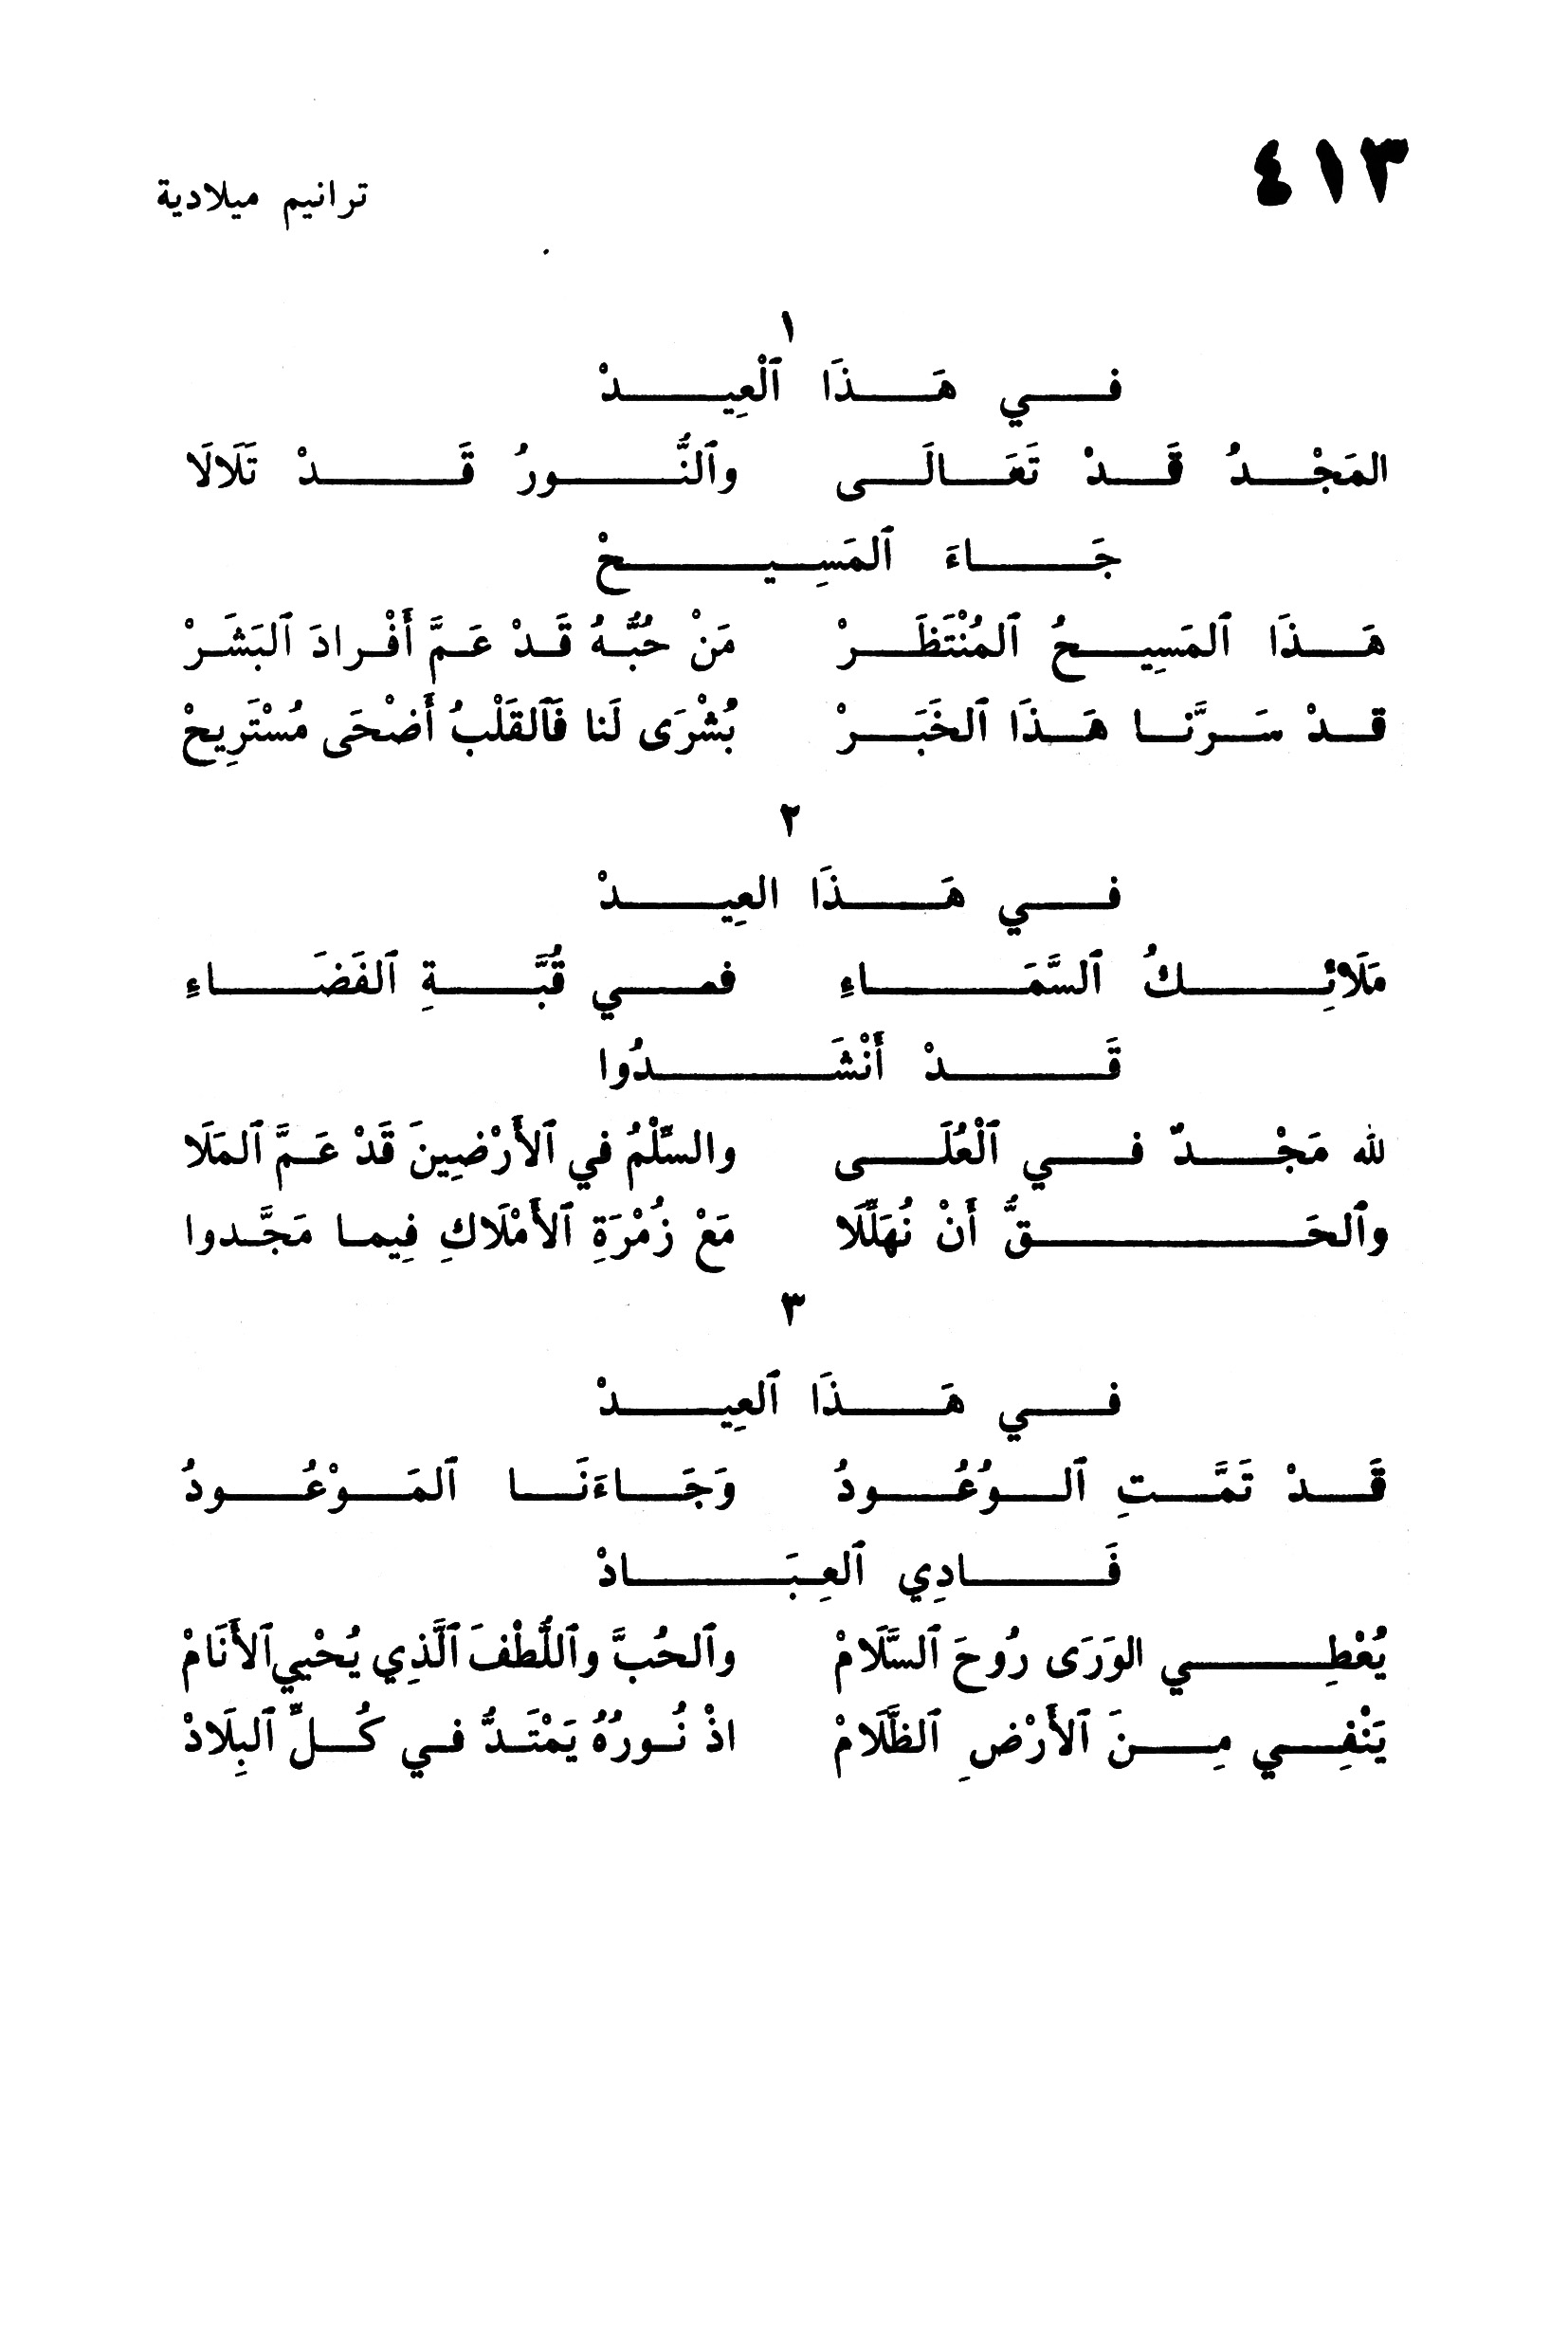 ٤١٣
ترانيم ميلادية
١
في هَذَا ٱلْعِيدْ
المَجْدُ قَدْ تَعَالَى وٱلنُّورُ قَدْ تَلَالَا
جَاءَ ٱلمَسِيحْ
هَذَا ٱلمَسِيحُ ٱلمُنْتَظَرْ مَنْ حُبُّهُ قَدْ عَمَّ أَفْرادَ ٱلبَشَرْ
قدْ سَرَّنا هَذَا ٱلخَبَرْ بُشْرَى لَنا فَٱلقَلْبُ أَضْحَى مُسْتَرِيحْ
٢
في هَذَا العِيدْ
مَلَائِكُ ٱلسَّمَاءِ في قُبَّةِ ٱلفَضَاءِ
قَدْ أَنْشَدُوا
لله مَجْدٌ في ٱلْعُلَى والسِّلْمُ في ٱلأَرْضِينَ قَدْ عَمَّ ٱلمَلَا
وٱلحَقُّ أَنْ نُهَلِّلَا مَعْ زُمْرَةِ ٱلأَمْلَاكِ فِيما مَجَّدوا
٣
في هَذَا ٱلعِيدْ
قَدْ تَمَّتِ ٱلوُعُودُ وَجَاءَنَا ٱلمَوْعُودُ
فَادِي ٱلعِبَادْ
يُعْطِي الوَرَى رُوحَ ٱلسَّلَامْ وٱلحُبَّ وٱللُّطْفَ ٱلَّذِي يُحْيي ٱلأَنَامْ
يَنْفِي مِنَ ٱلأَرْضِ ٱلظَّلَامْ اذْ نُورُهُ يَمْتَدُّ في كُلِّ ٱلبِلَادْ